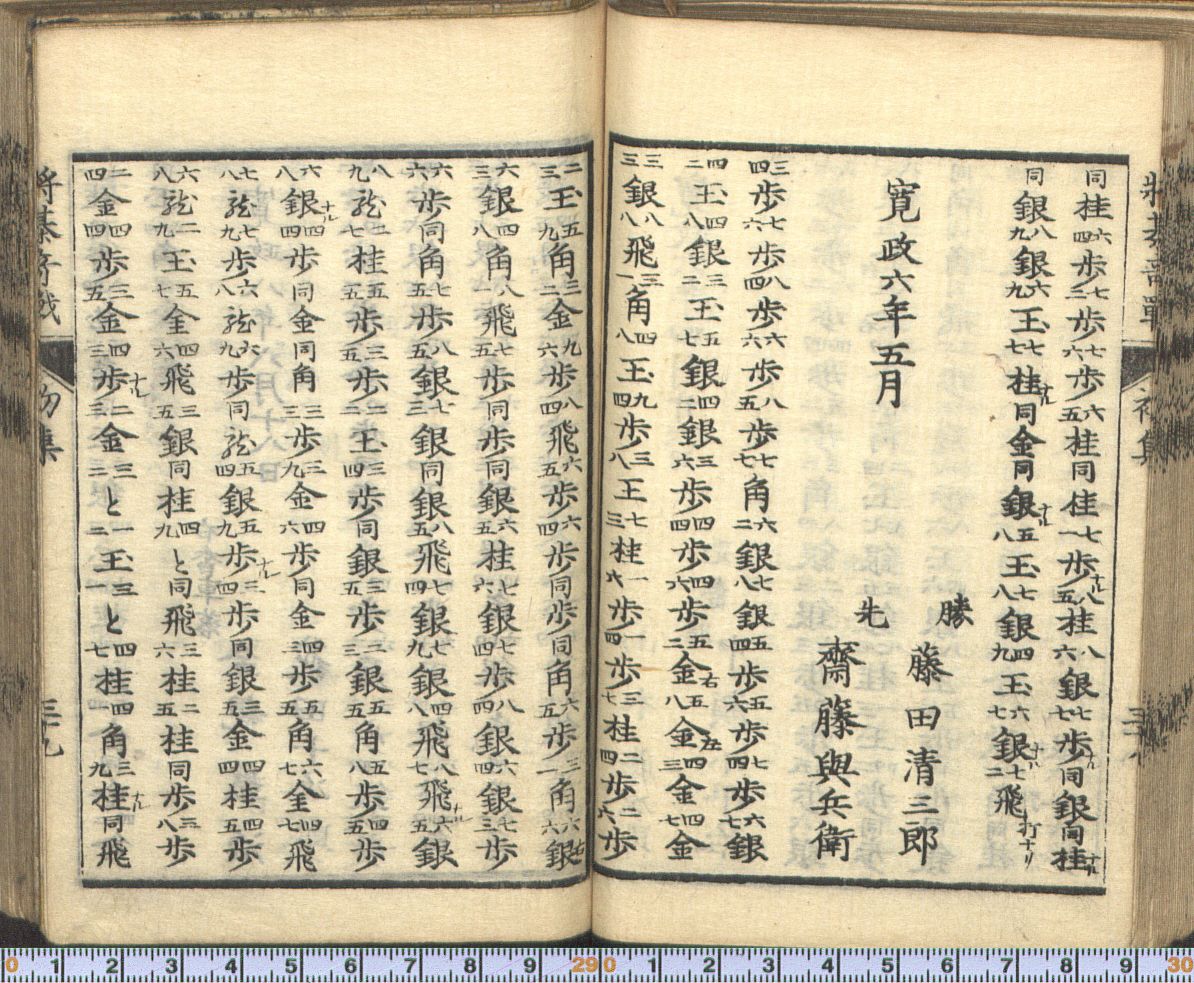 將棊竒戰 初集
同桂六四歩七二歩七六歩六五桂同桂七一歩ナル八五桂八六銀七七歩ナル同銀同桂ナル
同銀八九銀六九玉七七桂ナル同金同銀ナル五八玉七八銀四九玉六七銀ナル七二飛打十リ
寛政六年五月
勝 藤田清三郎
先 齋藤與兵衛
三四歩七六歩八四歩六六歩八五歩七七角六二銀七八銀五四歩五六歩七四歩六七銀
四二玉四八銀三二玉五七銀四二銀三六歩四四歩四六歩五二金右五八金左四三金四七金
三三銀八八飛三一角四八玉九四歩三八玉七三桂一六歩一四歩三七桂二四歩二六歩
二三玉五九角三二金九六歩八四飛六五歩六四歩同歩同角六五歩三一角六六銀右
六三銀四八角八飛七五歩同歩同銀六五桂六六銀七四歩八四歩六四銀七三歩
六六歩同角七五歩八五銀七三銀同銀八五飛七四銀七九銀八八飛八七飛ナル六五銀
八九龍二七桂五五歩三五歩二二玉三四歩同銀三五歩二三銀五五角五八歩四五歩
六八銀ナル四四歩同金同角三三歩三九金四六歩同金四三歩五五角六七金四七飛
七八龍七九歩六八龍六九歩同龍五四銀五九歩ナル三四歩同銀三五金四四桂四五歩
六八龍二九玉五七金四六飛三五銀同桂四九と同飛三六桂二五桂同歩三八歩
二四金四四歩三五金四三歩ナル二三金三二と一二玉三一と四七桂四四角三九桂ナル同飛
將棊竒戰 初集 三十九